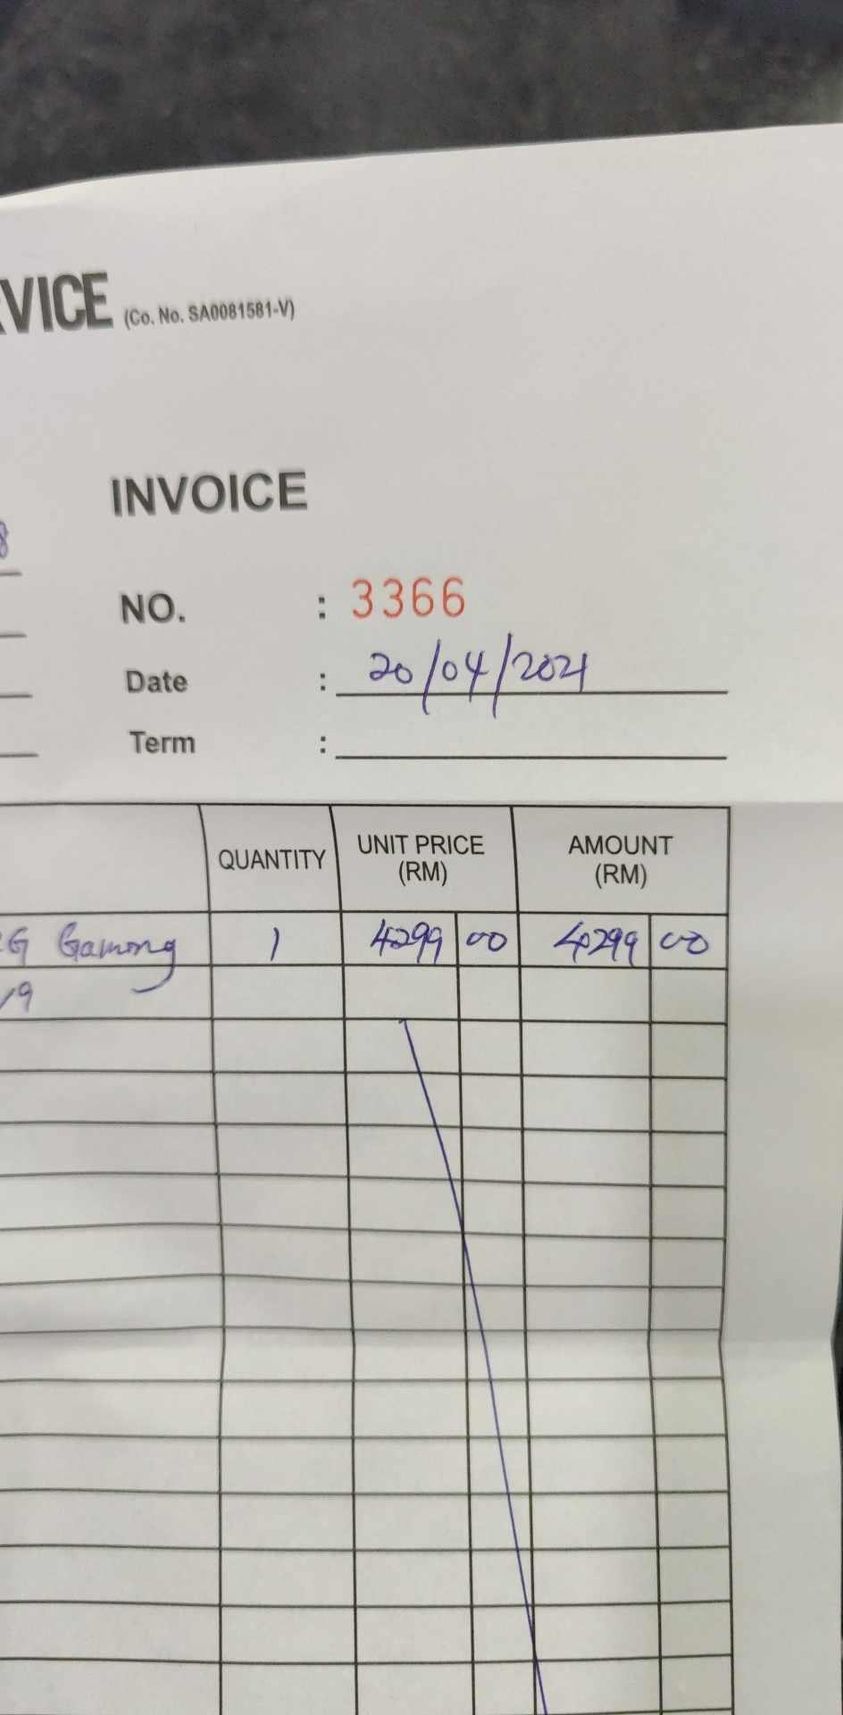 VICE (Co. No. SA0081581-V)
INVOICE
NO. : 3366
Date : 20/04/2021
Term :
QUANTITY UNIT PRICE (RM) AMOUNT (RM)
G Gaming 1 4299 00 4299 00
/9